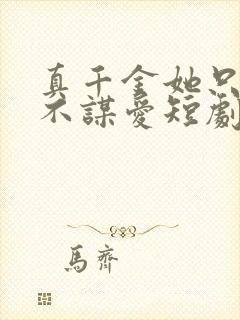 真千金她只
不謀愛短劇
馬齊